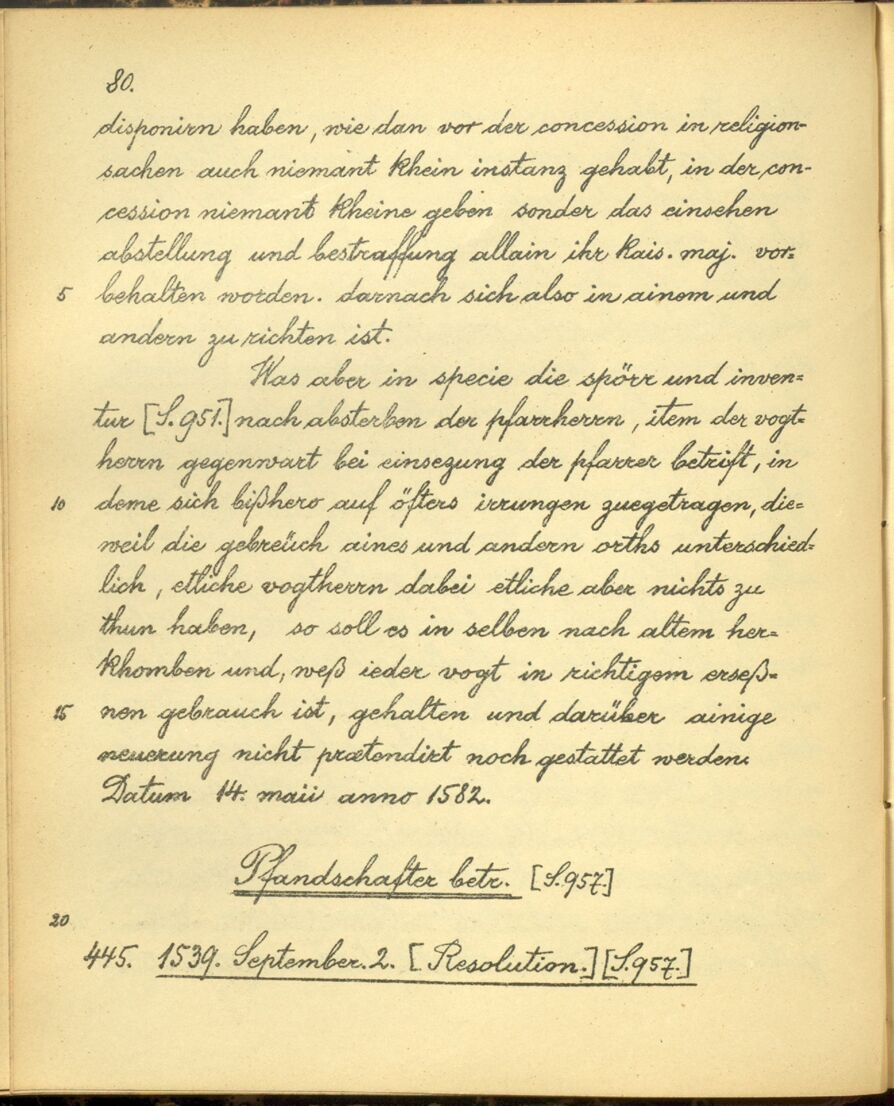 80.
disponirn haben, wie dan vor der concession in religion-
sachen auch niemant khein instanz gehabt, in der con-
cession niemant kheine geben sonder das einsehen
abstellung und bestraffung allain ihr kais. maj. vor=
5 behalten worden. darnach sich also in ainem und
andern zu richten ist.
Was aber in specie die spörr und inven=
tur [S. 951.] nach absterben der pfarrherrn, item der vogt=
herrn gegenwart bei einsezung der pfarrer betrift, in
10 deme sich bißhero auf öfters irrungen zuegetragen, die=
weil die gebreüch aines und andern orths unterschied=
lich, etliche vogtherrn dabei etliche aber nichts zu
thun haben, so soll es in selben nach altem her=
khomben und, weß ieder vogt in richtigem erseß=
15 nen gebrauch ist, gehalten und darüber ainige
neuerung nicht prætendirt noch gestattet werden.
Datum 14. maii anno 1582.
Pfandschafter betr. [S. 957.]
20
445. 1539. September. 2. [Resolution.] [S. 957.]